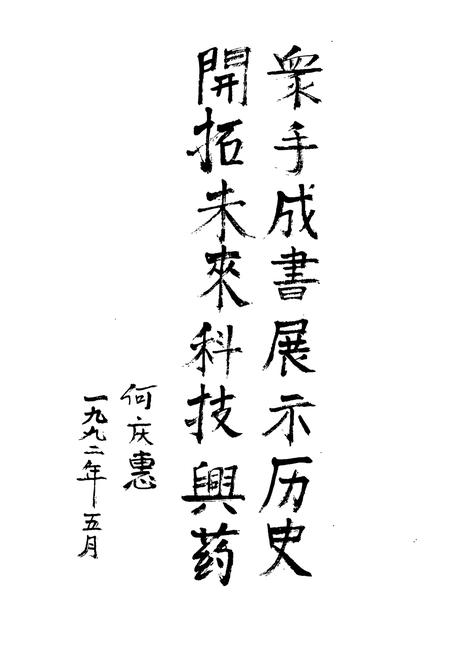 衆手成書展示历史
開拓未來科技興药
何庆惠
一九九二年五月